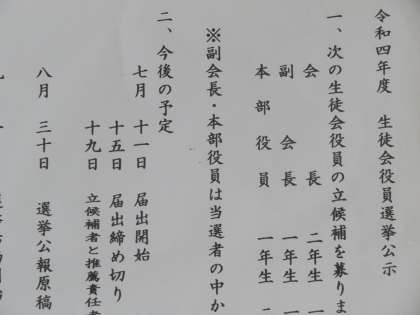 令和四年度　生徒会役員選挙公示
一、次の生徒会役員の立候補を募りま
会　　長　二年生　一
副　会　長　一年生　一
本　部　役　員　一年生　二
※副会長・本部役員は当選者の中か
二、今後の予定
七月　十一日　届出開始
十五日　届出締め切り
十九日　立候補者と推薦責任者
八月　三十日　選挙公報原稿